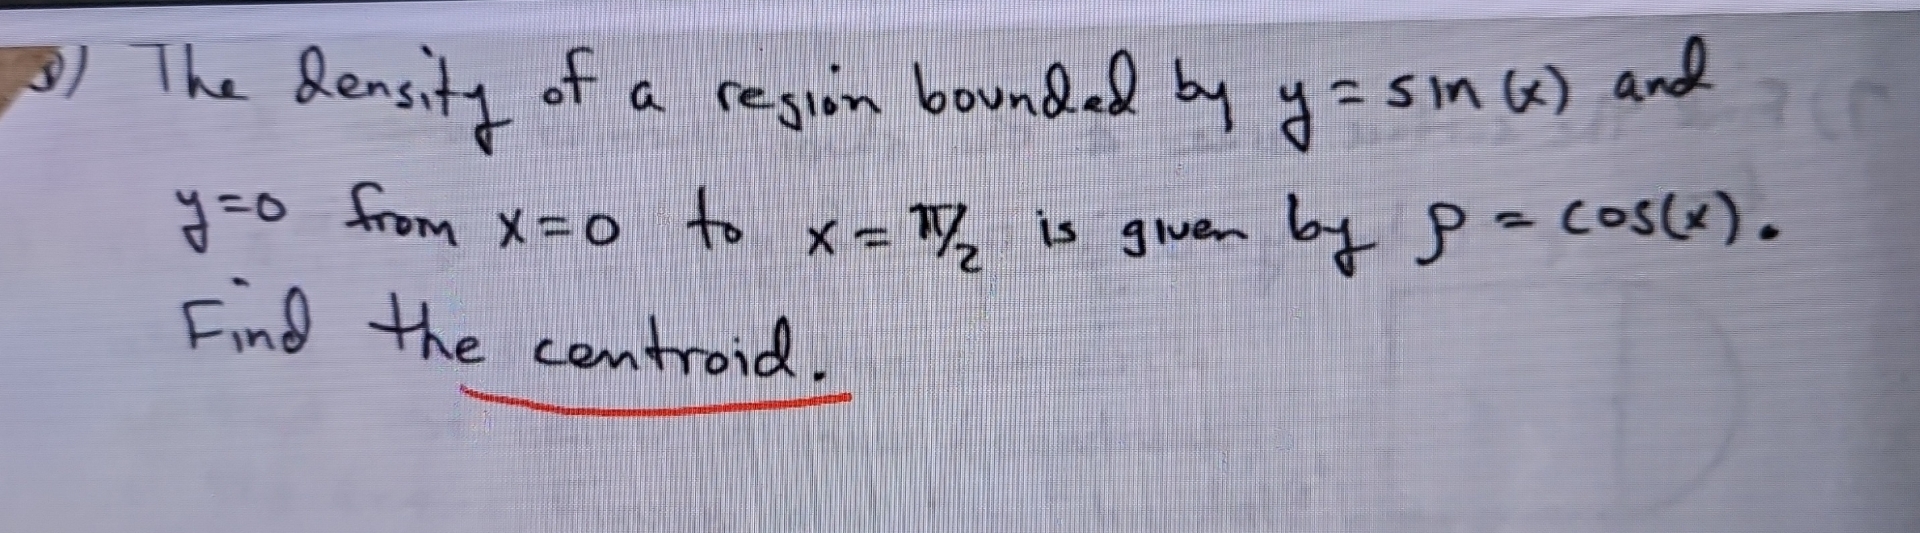 8) The density of a region bounded by y = sin(x) and
y=0 from x=0 to x = π/2 is given by ρ = cos(x).
Find the centroid.